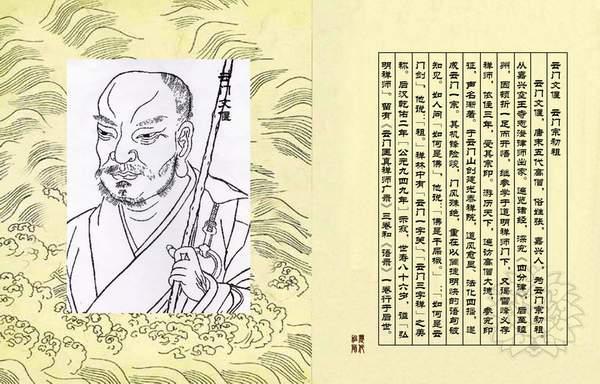 云门文偃
云门文偃 云门宗初祖
云门文偃,唐末五代高僧,俗姓张,嘉兴人,为云门宗初祖
从嘉兴空王寺志澄律师出家,遍览诸经,深究《四分律》后至睦
州,因顿折一足而开悟,继参学于道明禅师门下,又谒雪峰义存
禅师,依住三年,受其宗印。游历天下,遍访高僧大德,参究印
证,声名渐著。于云门山创建光泰禅院,道风愈显,法化四播,遂
成云门一宗。其机锋险峻,门风殊绝,重在以简捷明快的语句破
知见。如人问「如何是佛」,他说:「佛是干屎橛。」……「如何是云
门剑」,他说:「祖。」禅林中有「云门一字关」、「云门三字禅」之美
称。后汉乾佑二年(公元九四九年)示寂,世寿八十六岁,谥「弘
明禅师」。留有《云门匡真禅师广录》三卷和《语录》一卷行于后世。